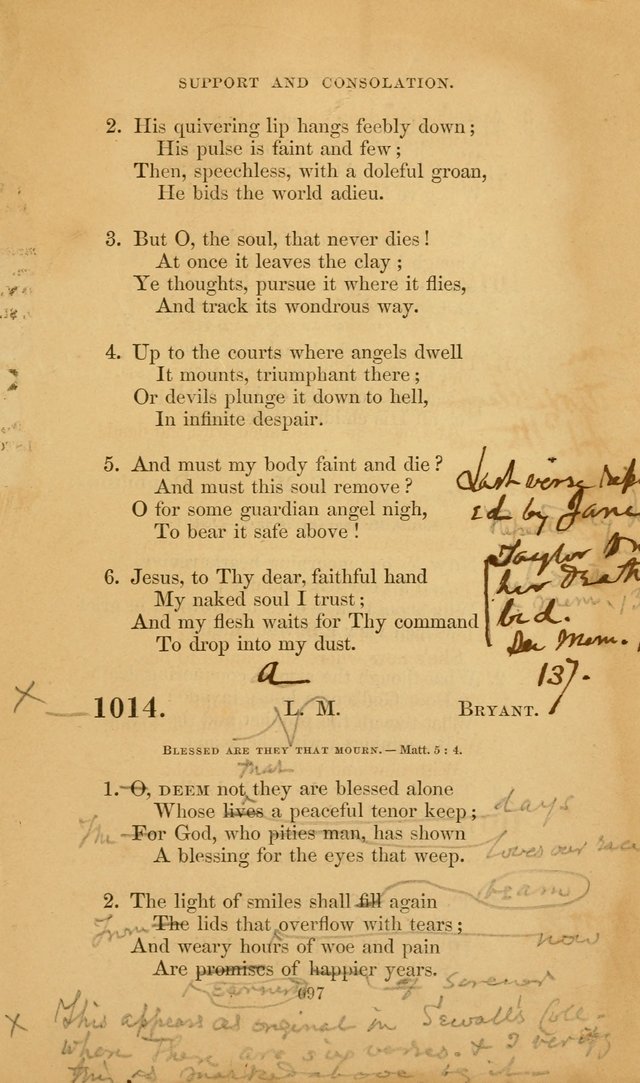 SUPPORT AND CONSOLATION.
2. His quivering lip hangs feebly down;
His pulse is faint and few;
Then, speechless, with a doleful groan,
He bids the world adieu.
3. But O, the soul, that never dies!
At once it leaves the clay;
Ye thoughts, pursue it where it flies,
And track its wondrous way.
4. Up to the courts where angels dwell
It mounts, triumphant there;
Or devils plunge it down to hell,
In infinite despair.
5. And must my body faint and die?
And must this soul remove?
O for some guardian angel nigh,
To bear it safe above!
Last verse
ed by Jane
Taylor
her Death
bed.
Mem.
137.
6. Jesus, to Thy dear, faithful hand
My naked soul I trust;
And my flesh waits for Thy command
To drop into my dust.
a
x 1014. L. M. BRYANT.
BLESSED ARE THEY THAT MOURN. — Matt. 5 : 4.
that
1. O, DEEM not they are blessed alone
Whose lives a peaceful tenor keep; days
The For God, who pities man, has shown
loves our race
A blessing for the eyes that weep.
beam
2. The light of smiles shall fill again
From The lids that overflow with tears;
now
And weary hours of woe and pain
Are promises of happier years.
Earnests of serener
697
x This appears as original in Sewall's Colle-
where there are six verses. & I verify
this as marked above by it